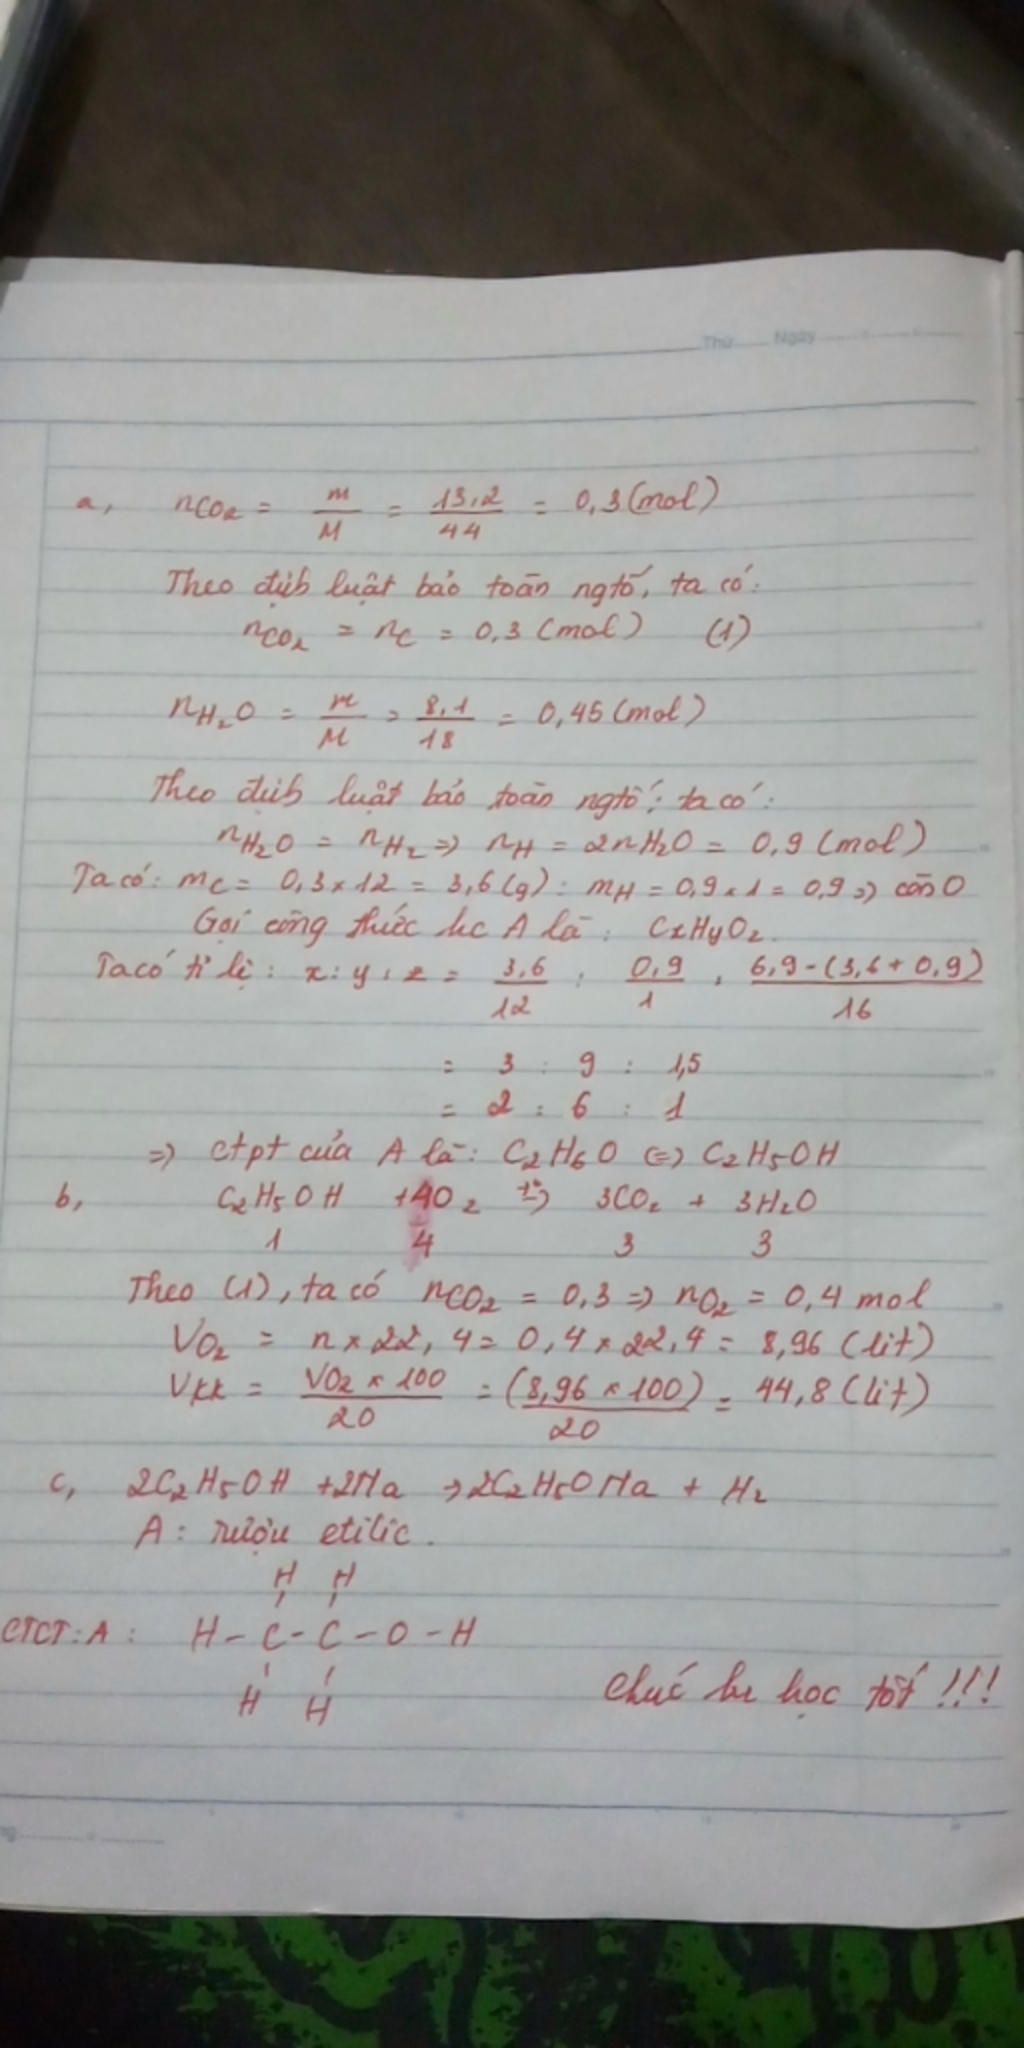 Thứ ...... Ngày
a, nCO2 = m/M = 13,2/44 = 0,3 (mol)
Theo định luật bảo toàn ngtố, ta có:
nCO2 = nC = 0,3 (mol) (1)
nH2O = m/M = 8,1/18 = 0,45 (mol)
Theo định luật bảo toàn ngtố; ta có:
nH2O = nH2 => nH = 2nH2O = 0,9 (mol)
Ta có: mC = 0,3 x 12 = 3,6 (g) : mH = 0,9 x 1 = 0,9 => còn O
Gọi công thức hc A là: CxHyOz.
Ta có tỉ lệ: x : y : z = 3,6/12 : 0,9/1 : 6,9-(3,6+0,9)/16
= 3 : 9 : 1,5
= 2 : 6 : 1
=> Ctpt của A là: C2H6O <=> C2H5OH
b, C2H5OH + 4O2 t°-> 3CO2 + 3H2O
1 4 3 3
Theo (1), ta có nCO2 = 0,3 => nO2 = 0,4 mol
VO2 = n x 22,4 = 0,4 x 22,4 = 8,96 (lit)
VKK = VO2 x 100/20 = (8,96 x 100)/20 = 44,8 (lit)
c, 2C2H5OH + 2Na -> 2C2H5ONa + H2
A: rượu etilic.
H H
CTCT: A: H - C - C - O - H
H H
Chúc bn học tốt !!!